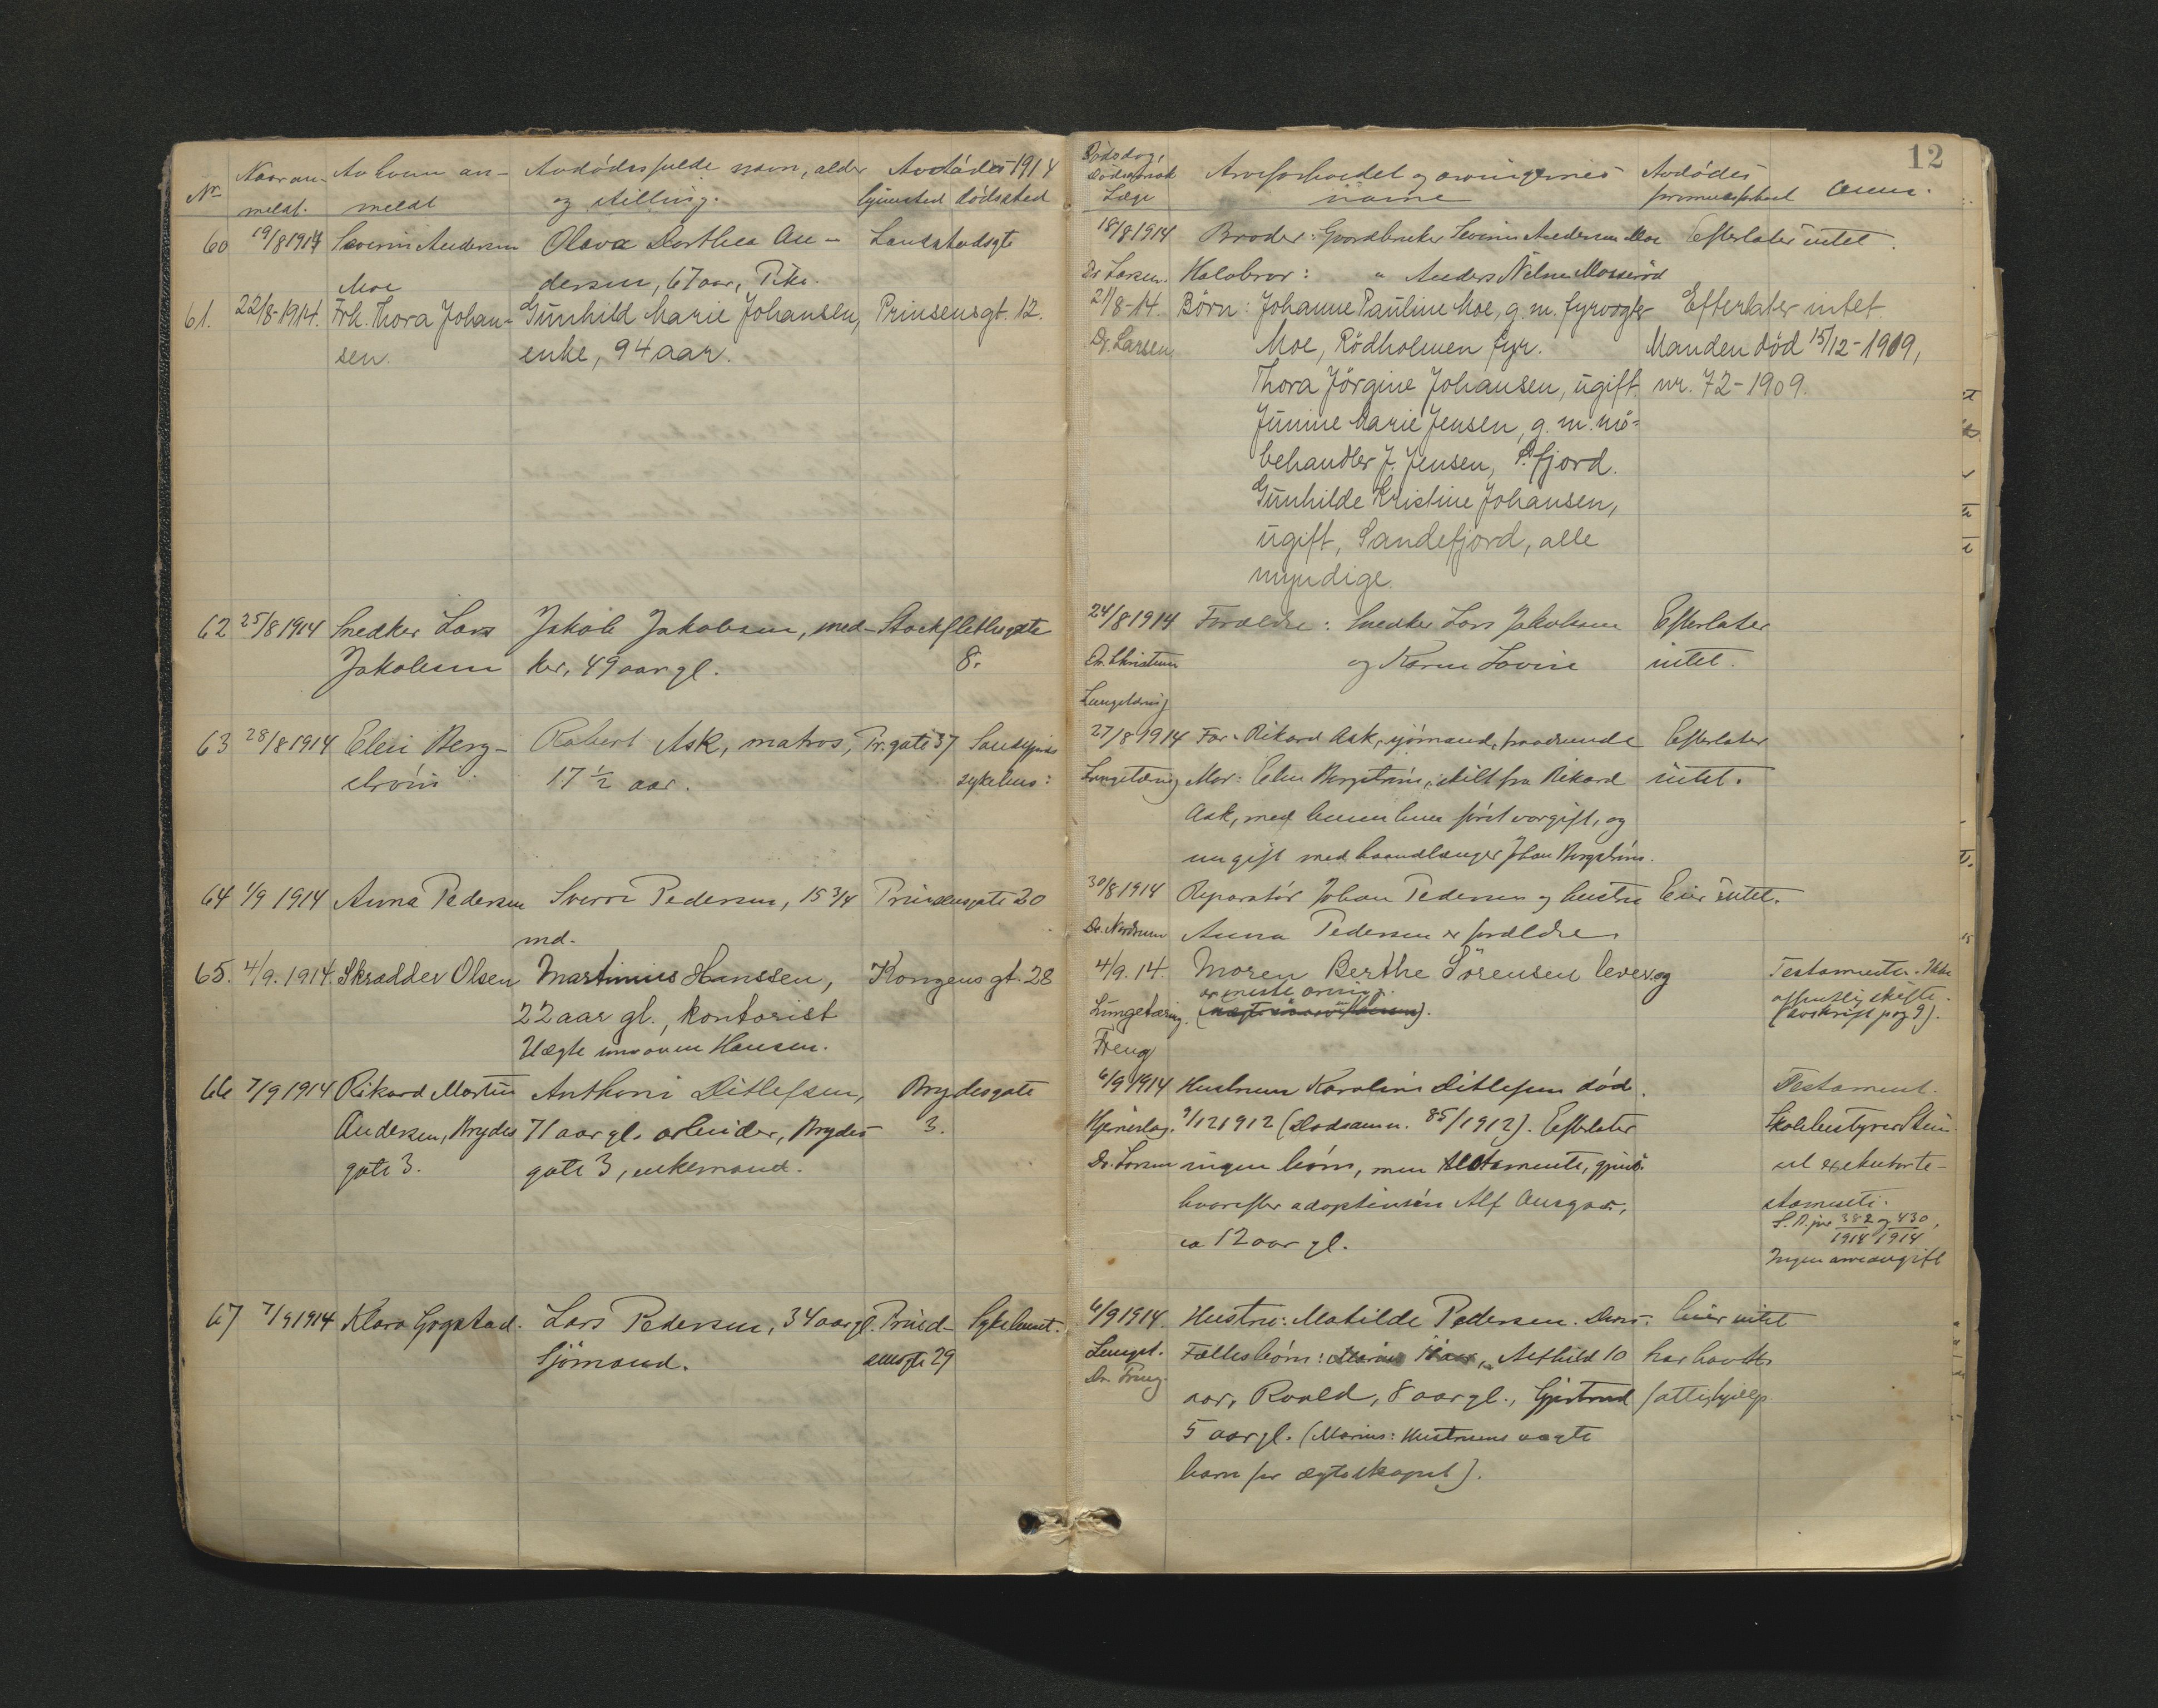 12
Nr.
Naar an-
meldt.
Av hvem an-
meldt
Avdødes fulde navn, alder
og stilling.
Avdødes 1914
hjemsted dødssted
Dødsdag,
Dødsårsak
Læge
Arveforholdet og arvingernes
navne
Avdødes
formuesforhold
Anm.
60 19/8 1914 Severin Andersen Olava Dorthea An- Landstadsgt 18/8 1914 Broder: Gaardbruker Severin Andersen Moe Efterlater intet.
Moe dersen, 67 aar, Pike. Dr. Larsen. Halvbror: " Anders Nilsen
61. 22/8-1914. Frk. Thora Johan- Gunhild Marie Johansen, Prinsensgt. 12. 21/8-14. Børn: Johanne Pauline Moe, g. m. fyrvogter Efterlater intet.
sen. enke, 94 aar. Dr. Larsen. Moe, Rödholmen fyr. Manden död 15/12-1909,
Thora Jörgine Johansen, ugift. nr. 72-1909.
Junine Marie Jensen, g. m. mö-
behandler J. Jensen, S.fjord.
Gunhilde Kristine Johansen,
ugift, Sandefjord, alle
myndige.
62 25/8 1914 Snedker Lars Jakob Jakobsen, sned- Stockflethsgate 24/8 1914 Forældre: Snedker Lars Jakobsen Efterlater
Jakobsen ker, 49 aar gl. 8. Dr. Christensen og Karen Lovise intet.
Lungetæring
63 28/8 1914 Elise Berg- Robert Ask, matros, Pr.gate 37 Sandefjords 27/8 1914 Far: Rikard Ask, sjömand, fraværende Efterlater
ström 17 1/2 aar. sykehus: Lungetæring Mor: Elise Bergström, skilt fra Rikard intet.
Ask, med hvem hun först var gift, og
nu gift med haandlanger Johan Bergström.
64 1/9 1914 Anna Pedersen Sverre Pedersen, 15 3/4 Prinsensgate 20 30/8 1914 Reparatör Johan Pedersen og hustru Eier intet.
md. Dr. Nordrum Anna Pedersen er forældre.
65. 4/9. 1914. Skrædder Olsen Martinius Hanssen, Kongensgt. 28 4/9. 14. Moren Berthe Sörensen lever og Testamente. Ikke
er neste arving. offentlig skifte.
22 aar gl., kontorist Lungetæring. (avskrift pag 9).
Uægte sön av en Hansen. Freng
66 7/9 1914 Rikard Martin Anthoni Ditlefsen, Brydesgate 6/9 1914 Hustruen Karoline Ditlefsen död. Testament.
Andersen, Brydes 71 aar gl. arbeider, Brydes- 3. Hjerneslag. 9/12 1912 (Dødsanm. 85/1912). Efterlater Skolebestyrer
gate 3. gate 3, enkemand. Dr. Larsen ingen börn, men testamente, hvorefter adoptivsön Alf Ansgar, eksekutorte-
ca 12 aar gl. stamenti.
382 og 430,
1914 1914
Ingen arveavgift
67 7/9 1914 Klara Gogstad. Lars Pedersen, 34 aar gl. Prind- Sykehuset. 6/9 1914. Hustru: Matilde Pedersen. Eier intet
Sjömand. sensgt 29 Lunget. Fællesbörn: Alfhild 10 har havt
Dr. Freng. aar, Roald, 8 aar gl., Gjertrud fattighjælp
5 aar gl. (Marius: Hustruens uægte
barn för ægteskapet).